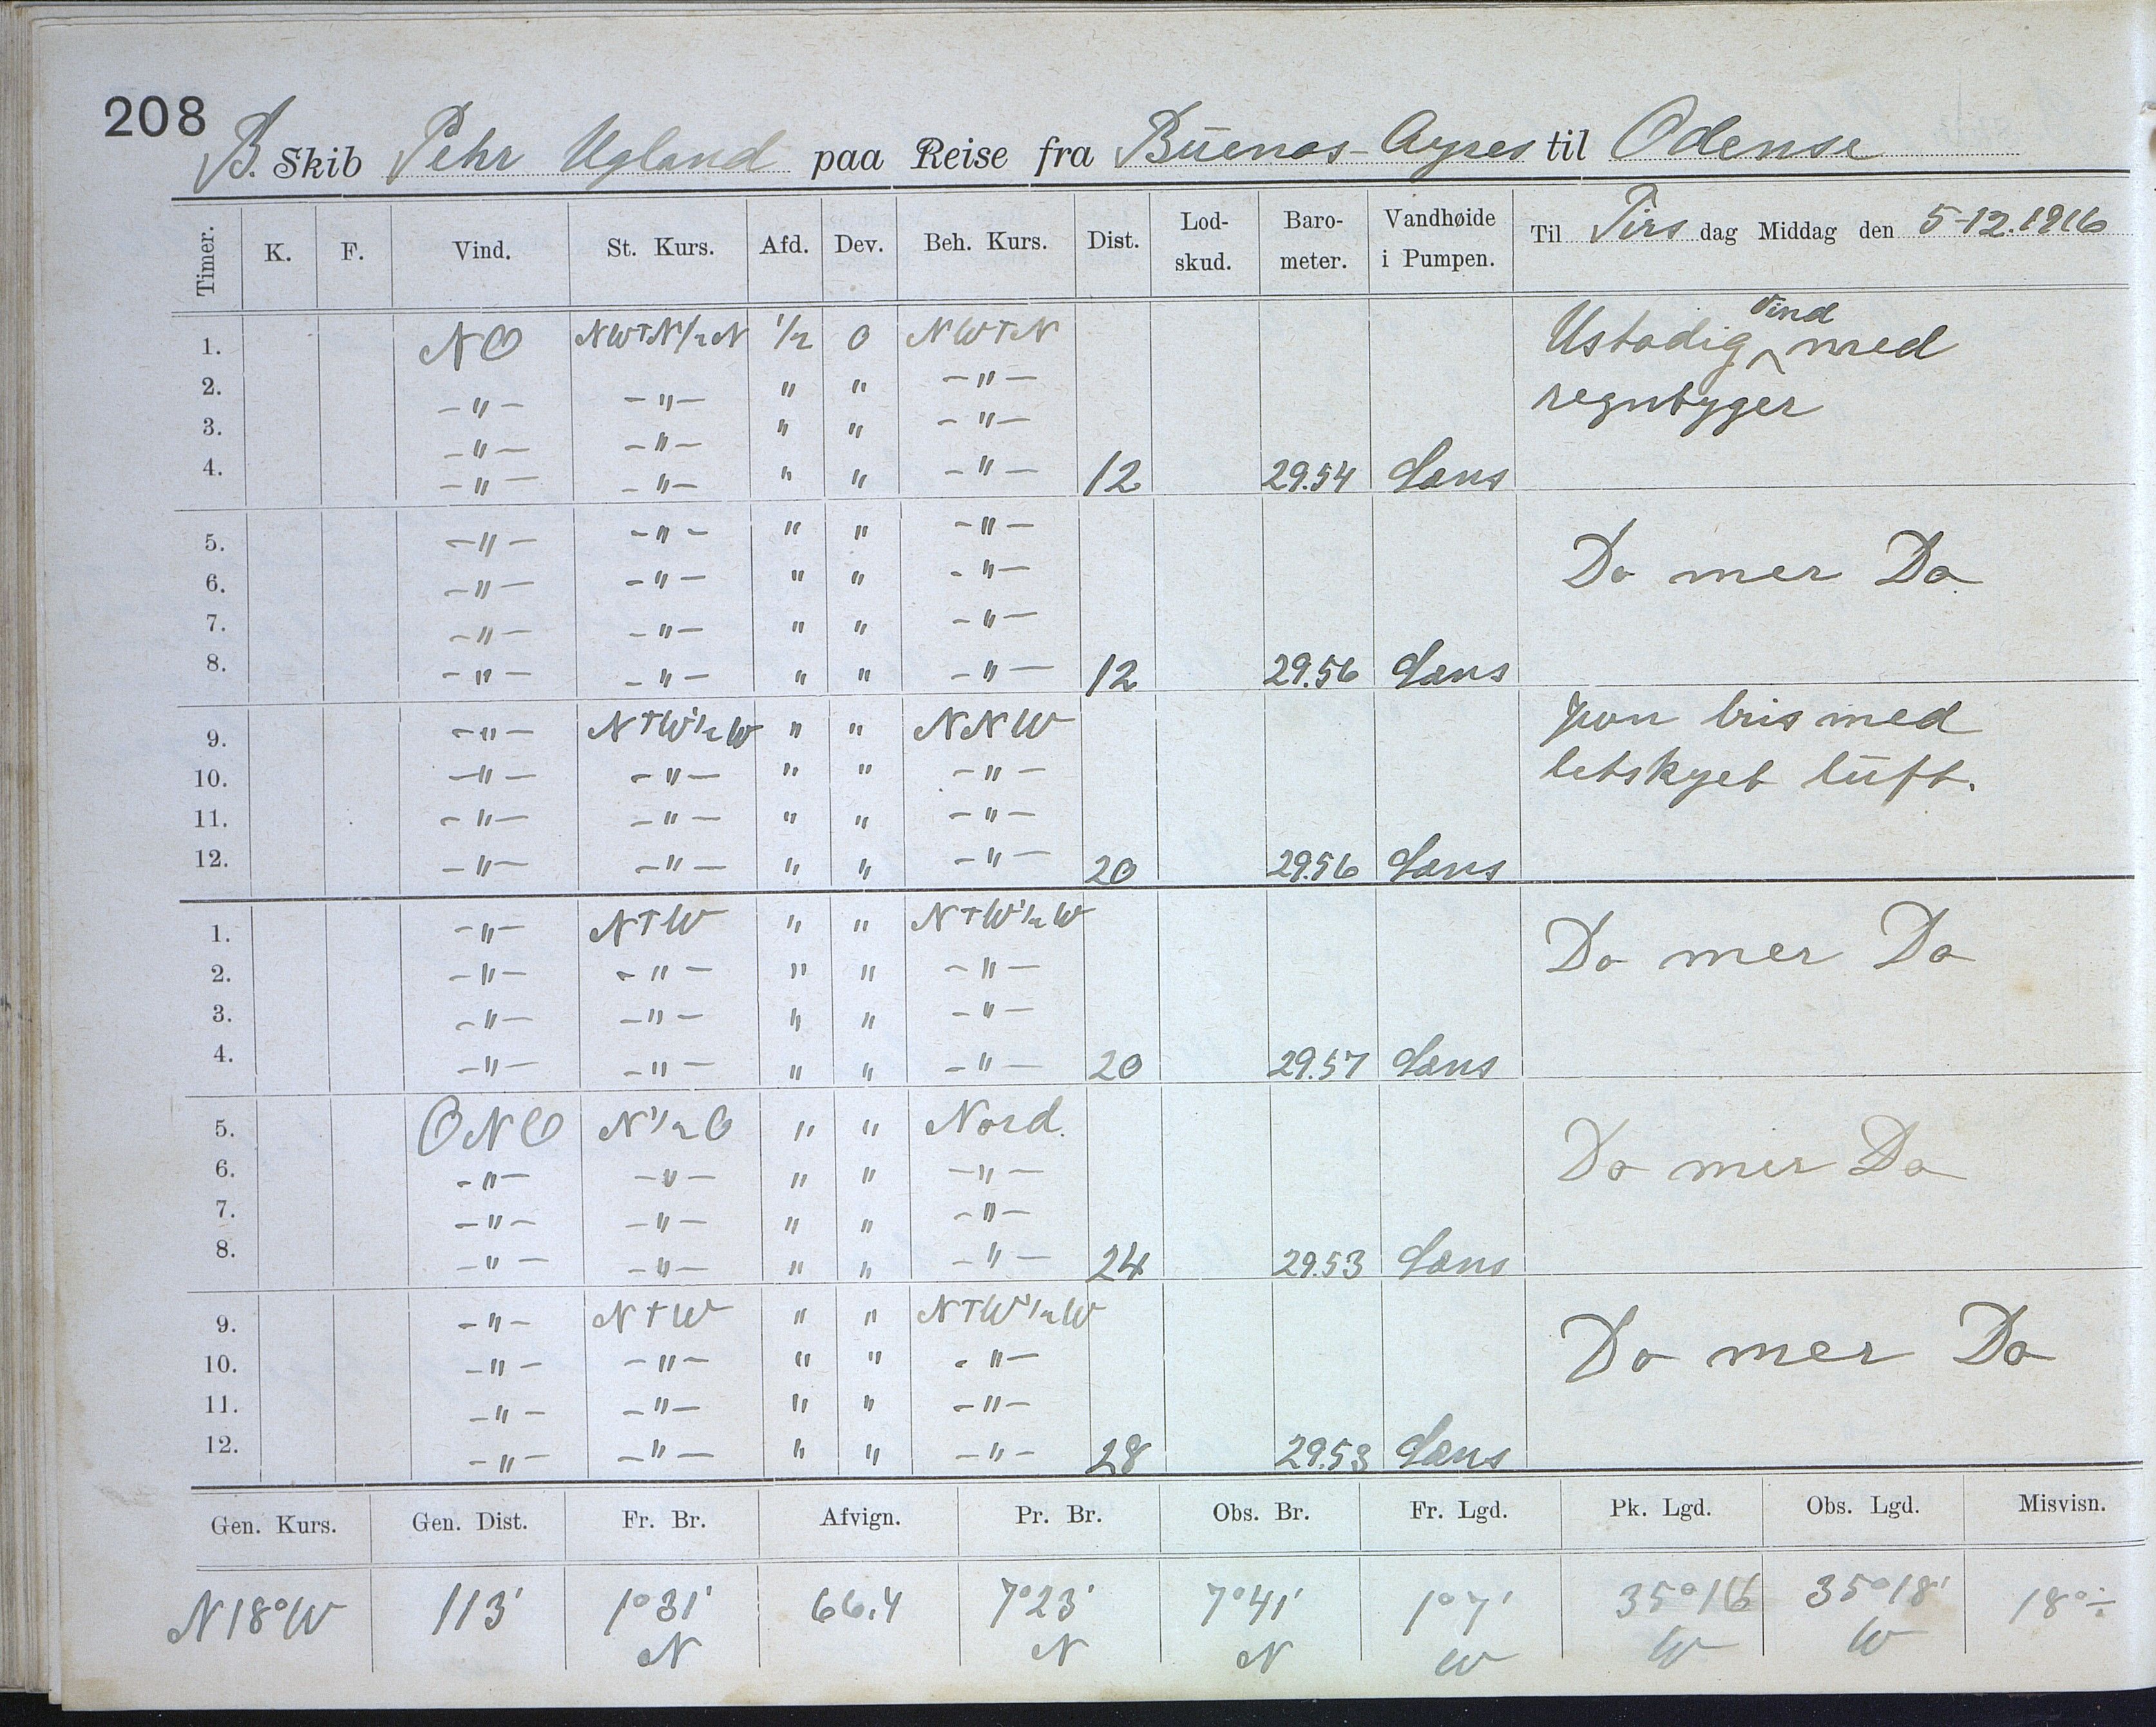 208
B. Skib Pehr Ugland paa Reise fra Buenos-Ayres til Odense
Timer. K. F. Vind. St. Kurs. Afd. Dev. Beh. Kurs. Dist. Lod-skud. Baro-meter. Vandhøide i Pumpen. Til Tirs dag Middag den 5-12.1916
1. NO NWTN½N ½ 0 NWTN Ustadig vind med
2. -"- -"- " " -"- regnbyger
3. -"- -"- " " -"-
4. -"- -"- " " -"- 12 29.54 Læns
5. -"- -"- " " -"- Do mer Do
6. -"- -"- " " -"-
7. -"- -"- " " -"-
8. -"- -"- " " -"- 12 29.56 Læns
9. -"- NTW½W " " NNW jvon bris med
10. -"- -"- " " -"- letskyet luft.
11. -"- -"- " " -"-
12. -"- -"- " " -"- 20 29.56 Læns
1. -"- NTW " " NTW½W Do mer Do
2. -"- -"- " " -"-
3. -"- -"- " " -"-
4. -"- -"- " " -"- 20 29.57 Læns
5. ONO N½O " " Nord. Do mer Do
6. -"- -"- " " -"-
7. -"- -"- " " -"-
8. -"- -"- " " -"- 24 29.53 Læns
9. -"- NTW " " NTW½W Do mer Do
10. -"- -"- " " -"-
11. -"- -"- " " -"-
12. -"- -"- " " -"- 28 29.53 Læns
Gen. Kurs. Gen. Dist. Fr. Br. Afvign. Pr. Br. Obs. Br. Fr. Lgd. Pk. Lgd. Obs. Lgd. Misvisn.
N18°W 113' 1°31' 66.4 7°23' 7°41' 1°7' 35°16 35°18' 18°÷
N N N W W W